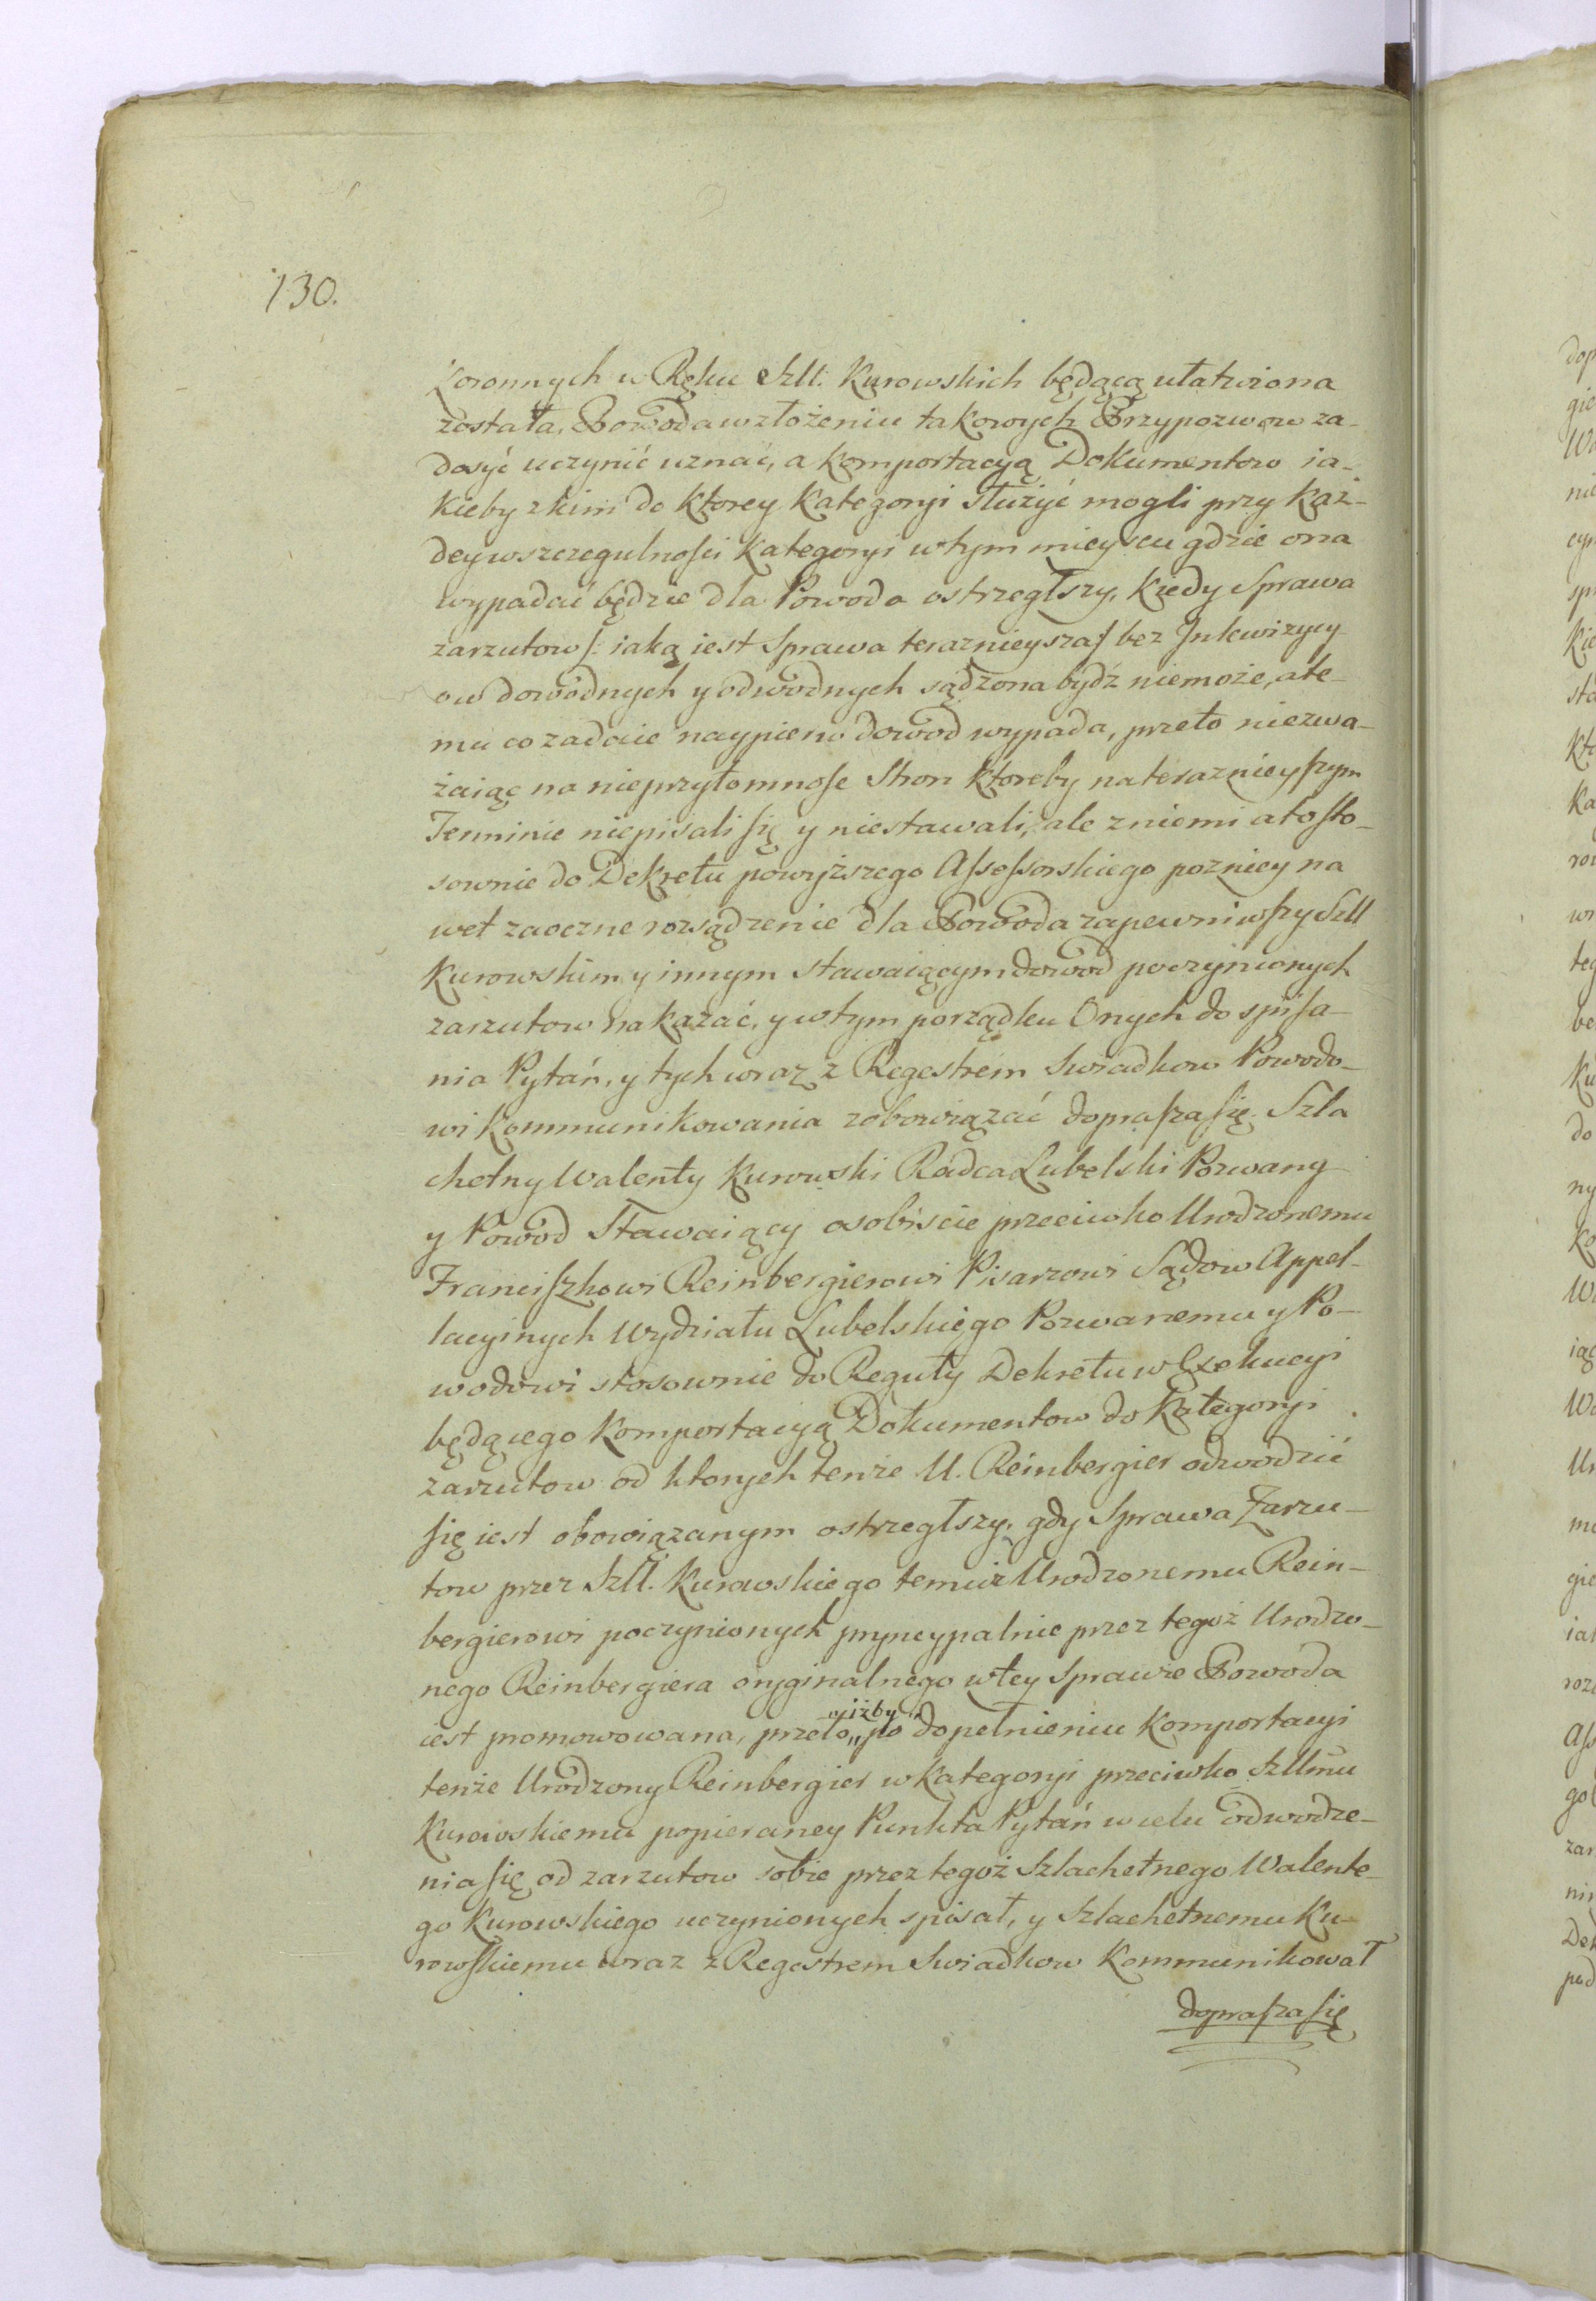 130.
Koronnych w Ręku Szll: Kurowskich będącą ułatwiona
została, Powoda w złożeniu takowych Przypozwow za-
dosyć uczynić uznać, a komportacyą Dokumentow ia-
kieby z kim do ktorey kategoryi służyć mogli przy każ-
dey w szczegulności kategoryi w tym mieyscu gdzie ona
wypadać będzie dla Powoda ostrzegłszy, kiedy Sprawa
zarzutow /: iaką iest Sprawa teraznieysza :/ bez Inkwizycy
ow dowodnych y odwodnych sądzona bydź niemoże, a te-
mu co zadaie naypierw dowod wypada, przeto niezwa-
żaiąc na nieprzytomnośc Stron ktoreby na teraznieyszym
Terminie niepisali się y niestawali, ale z niemi a to sto-
sownie do Dekretu powyższego Assessorskiego pozniey na
wet zaoczne rozsądzenie dla Powoda zapewniwszy Szll
Kurowskim y innym stawaiącym dowod poczynionych
zarzutow nakazać, y w tym porządku Onych do spisa-
nia Pytań, y tych wraz z Regestrem Swiadkow Powodo-
wi kommunikowania zobowiązać doprasza się. Szla
chetny Walenty Kurowski Radca Lubelski Pozwany
y Powod Stawaiący osobiscie przeciwko Urodzonemu
Franciszkowi Reinbergierowi Pisarzowi Sądow Appel-
lacyinych Wydziału Lubelskiego Pozwanemu y Po-
wodowi stosownie do Reguły Dekretu w Exekucyi
będącego komportacyą Dokumentow do kategoryi
zarzutow od ktorych tenże U. Reinbergier odwodzić
się iest obowiązanym ostrzegłszy, gdy Sprawa Zarzu-
tow przez Szll. Kurowskiego temuż Urodzonemu Rein-
bergierowi poczynionych pryncypalnie przez tegoż Urodzo-
nego Reinbergiera oryginalnego w tey Sprawie Powoda
iest promowowana, przeto „iżby” po dopełnieniu komportacyi
tenże Urodzony Reinbergier w kategoryi przeciwko Szllmu
Kurowskiemu popieraney Punkta Pytań w celu odwodze-
nia się od zarzutow sobie przez tegoż Szlachetnego Walente-
go Kurowskiego uczynionych spisał, y Szlachetnemu Ku-
rowskiemu wraz z Regestrem Swiadkow kommunikował
doprasza się